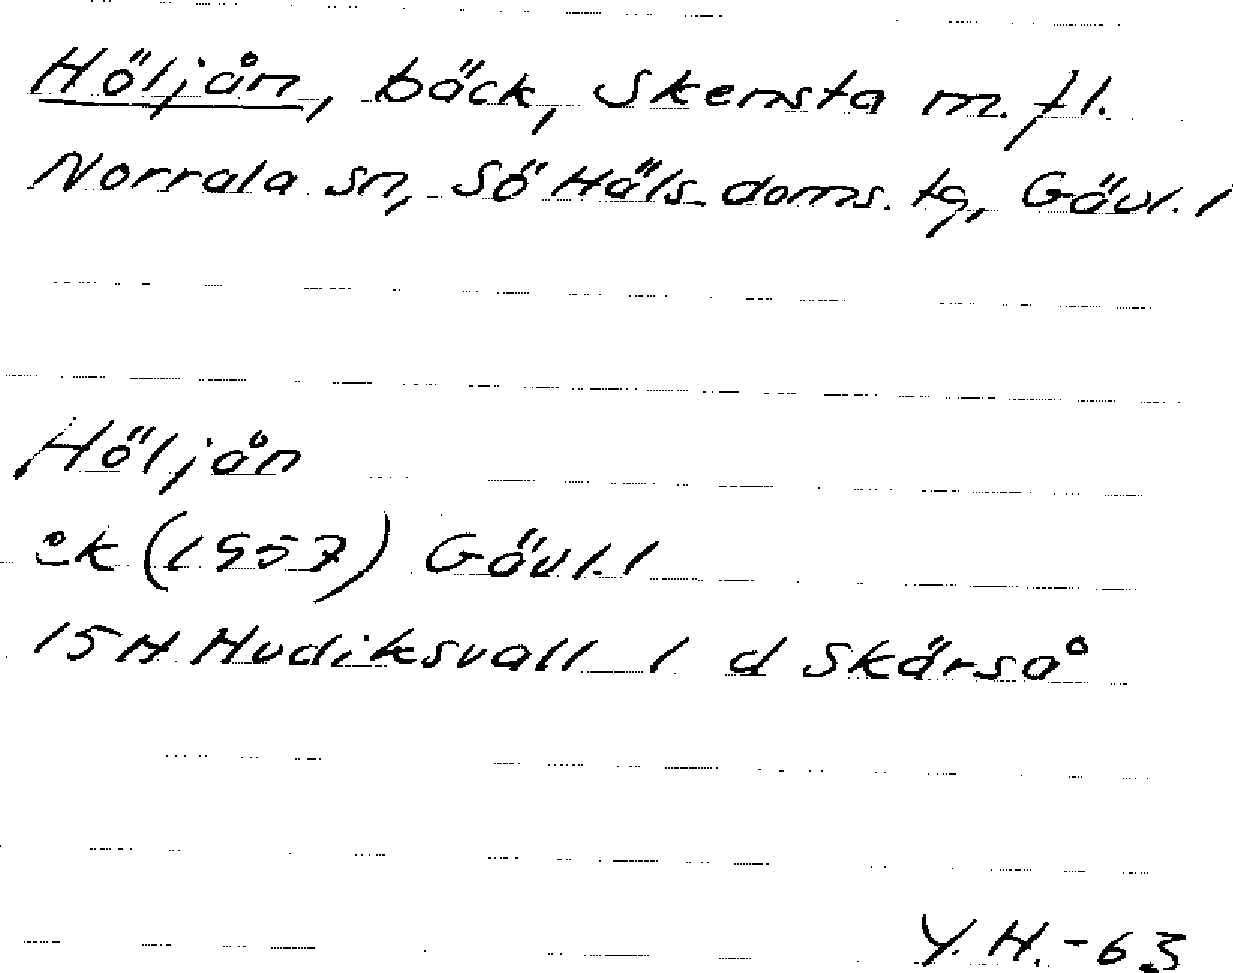 Höljån, bäck, Skensta m. fl.
Norrala sn, Sö Häls. doms. tg, Gävl. l
Höljån
ek (1957) Gävl. l
15H Hudiksvall 1 d Skärså
Y. H. - 63